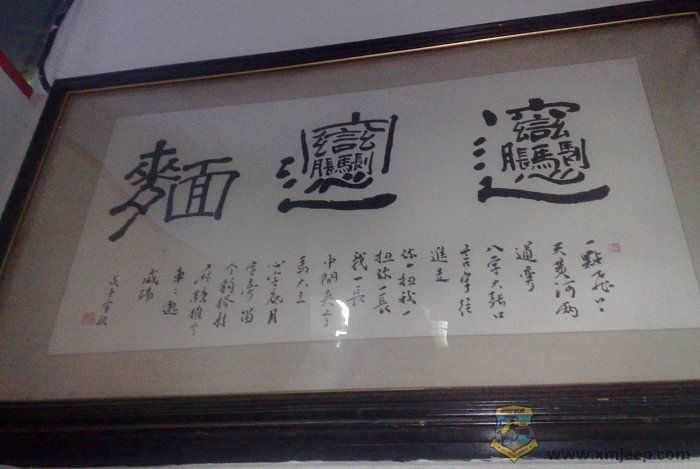 𰻞𰻞麵
一點飛上
天黄河两
道彎
八字大張口
言字往
進走
你一扭我一
扭你一長
我一長
中間夾个
馬大王
心字底月
字旁留
个鈎搭挂
麻糖推个
車
逛
咸陽
戊子
www.xmjeep.com